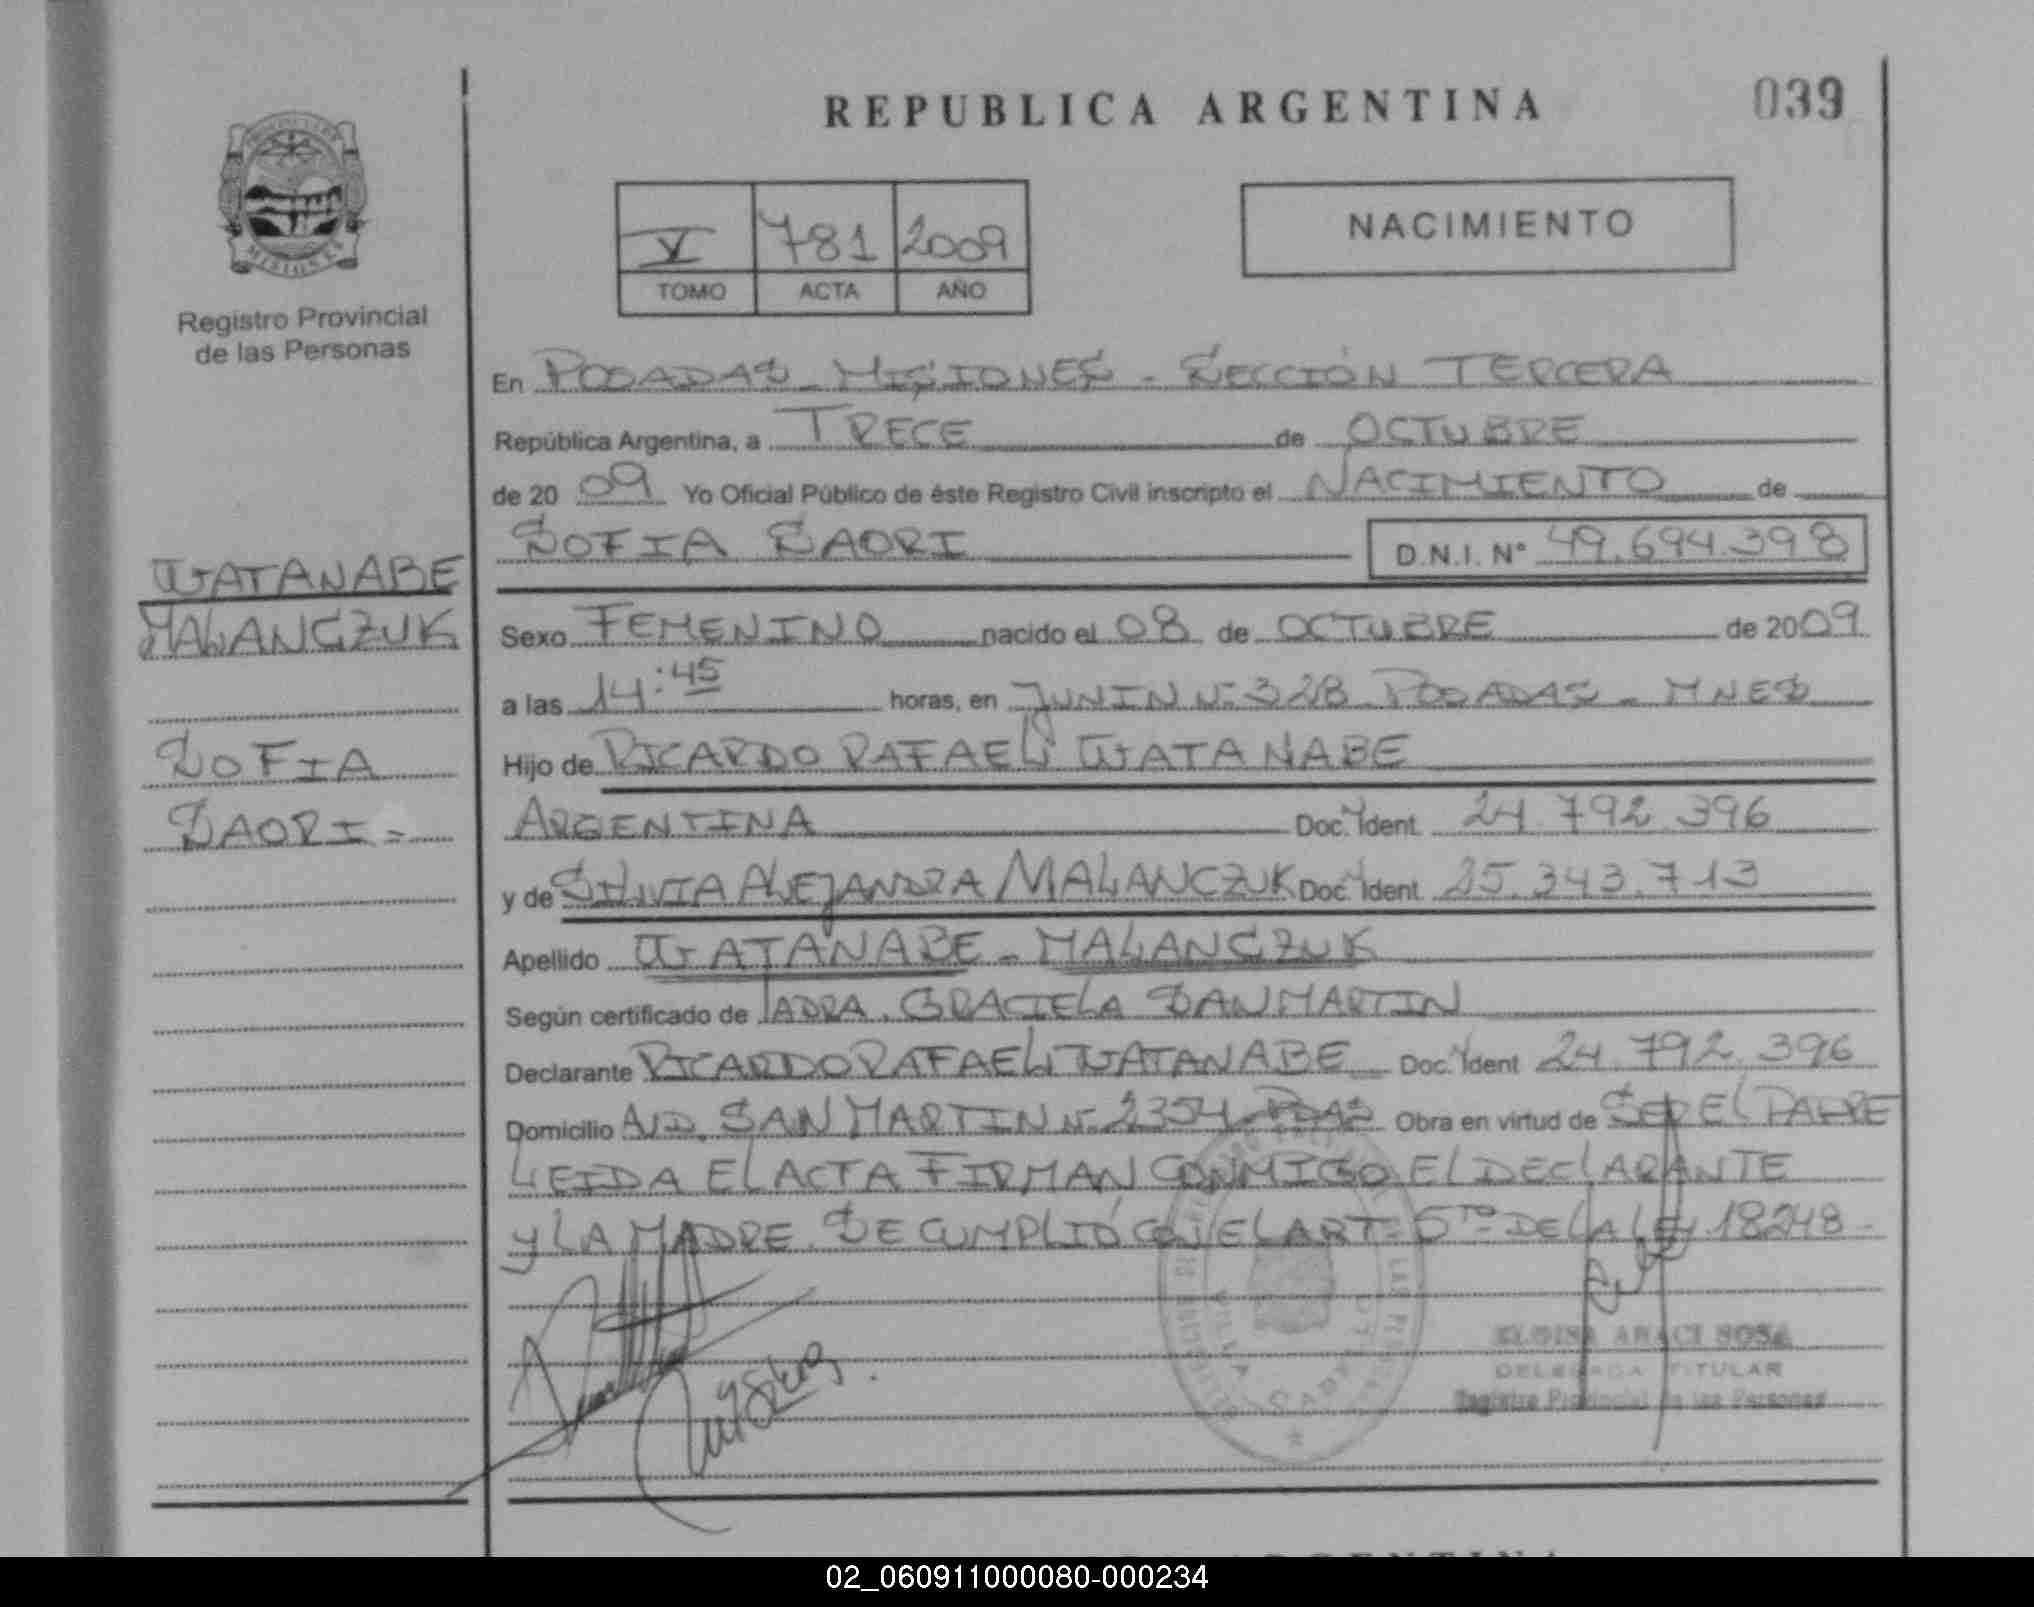 REPUBLICA ARGENTINA
039
MISIONES
Registro Provincial
de las Personas
V 781 2009
TOMO ACTA AÑO
NACIMIENTO
En POSADAS - MISIONES - SECCIÓN TERCERA
República Argentina, a TRECE de OCTUBRE
de 2009 Yo Oficial Público de éste Registro Civil inscripto el NACIMIENTO de
SOFIA SAORI D.N.I. N° 49.694.398
WATANABE
MALANCZUK
SOFIA
SAORI =
Sexo FEMENINO nacido el 08 de OCTUBRE de 2009
a las 14:45 horas, en JUNIN N° 328 POSADAS - MNES
Hijo de RICARDO RAFAEL WATANABE
ARGENTINA Doc. Ident 24.792.396
y de SILVIA ALEJANDRA MALANCZUK Doc. Ident 25.343.713
Apellido WATANABE - MALANCZUK
Según certificado de GRACIELA SANMARTIN
Declarante RICARDO RAFAEL WATANABE Doc. Ident 24.792.396
Domicilio AVD. SAN MARTIN N° 2354 - PDAS Obra en virtud de SER EL PADRE
LEIDA EL ACTA FIRMAN CONMIGO EL DECLARANTE
y LA MADRE. SE CUMPLIÓ CON EL ART= 5TO DE LA LEY 18248
ELOISA ARACI SOSA
DELEGADA TITULAR
Registro Provincial de las Personas
VILLA CABELLO
02_060911000080-000234